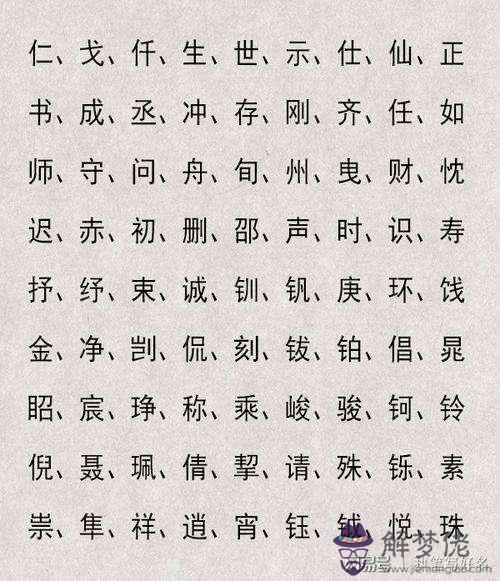 仁、戈、仟、生、世、示、仕、仙、正
书、成、丞、冲、存、刚、齐、任、如
师、守、问、舟、旬、州、曳、财、忱
迟、赤、初、删、邵、声、时、识、寿
抒、纾、束、诚、钏、钒、庚、环、饯
金、净、剀、侃、刻、钹、铂、倡、晁
眧、宸、琤、称、乘、峻、骏、钶、铃
倪、聂、珮、倩、挈、请、殊、铄、素
祟、隼、祥、逍、宵、钰、钺、悦、珠
解梦佬
www.jiemenglao.com